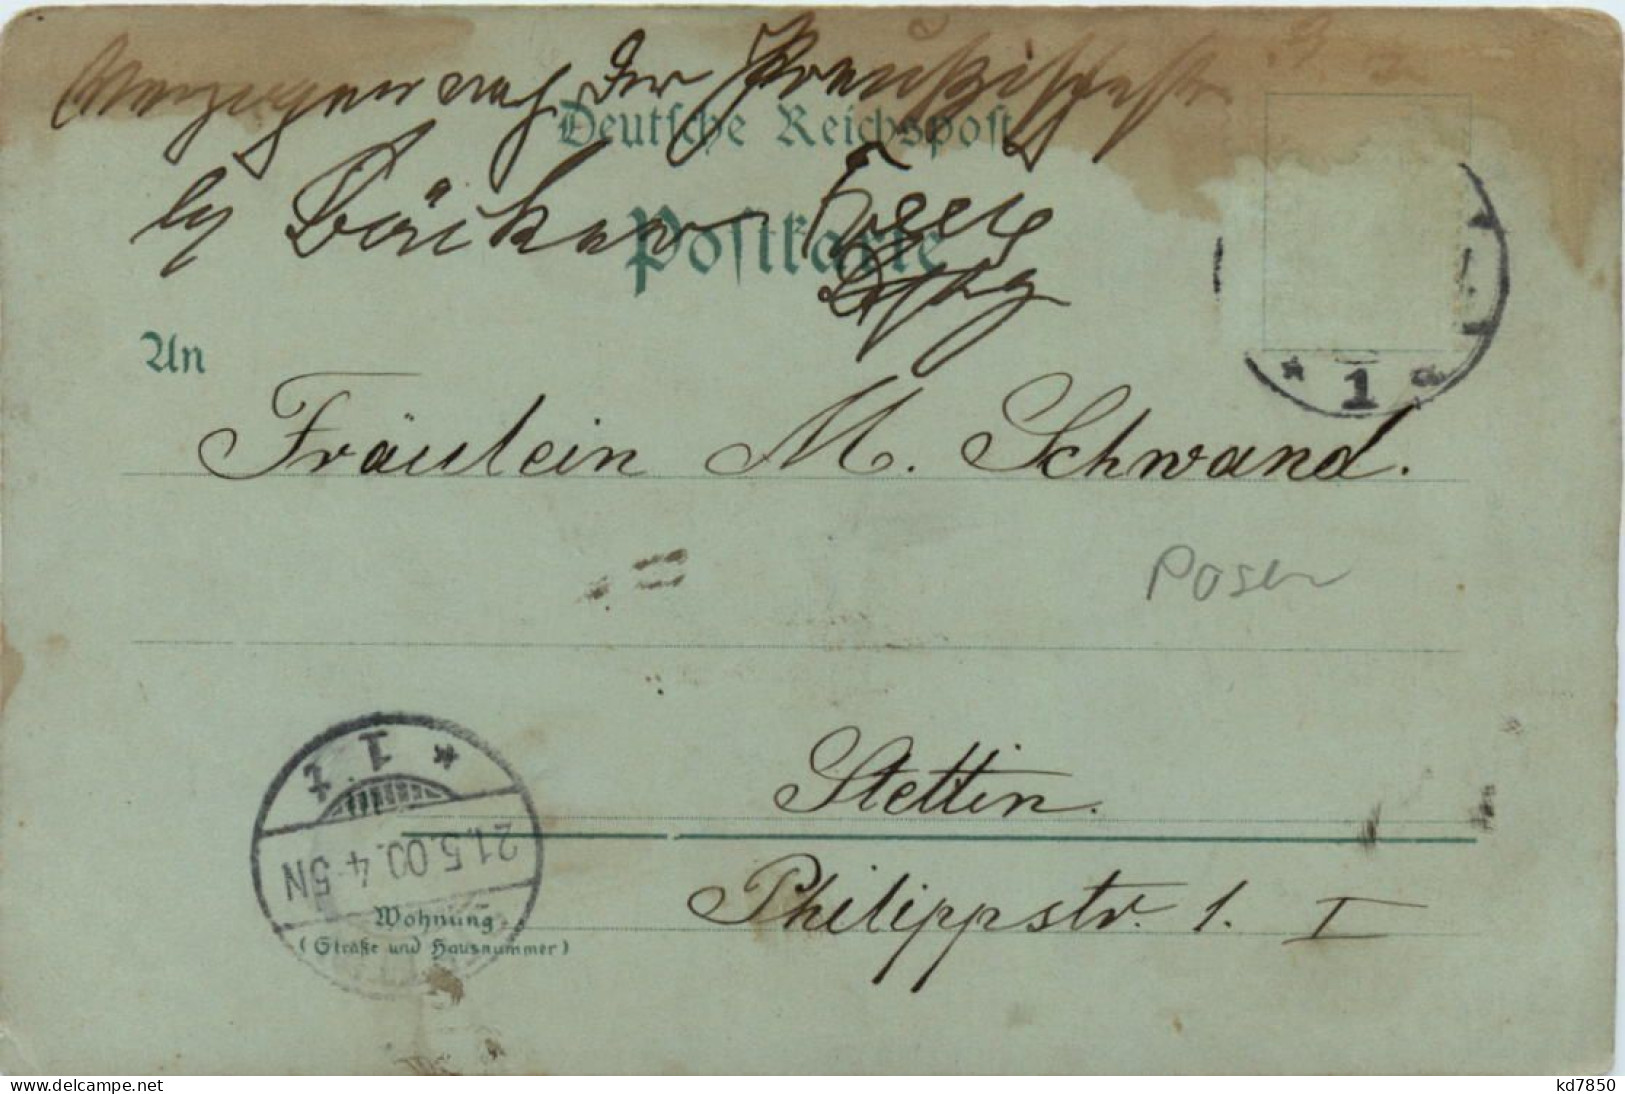 Verzogen nach der Preußischestr
Deutsche Reichspost
bei Bäcker
Postkarte
An
Fräulein M. Schwand.
Posen
Stettin.
* 1 *
1
21.5.00.4-5N
Philippstr. 1. I
Wohnung
(Straße und Hausnummer)
www.delcampe.net
kd7850